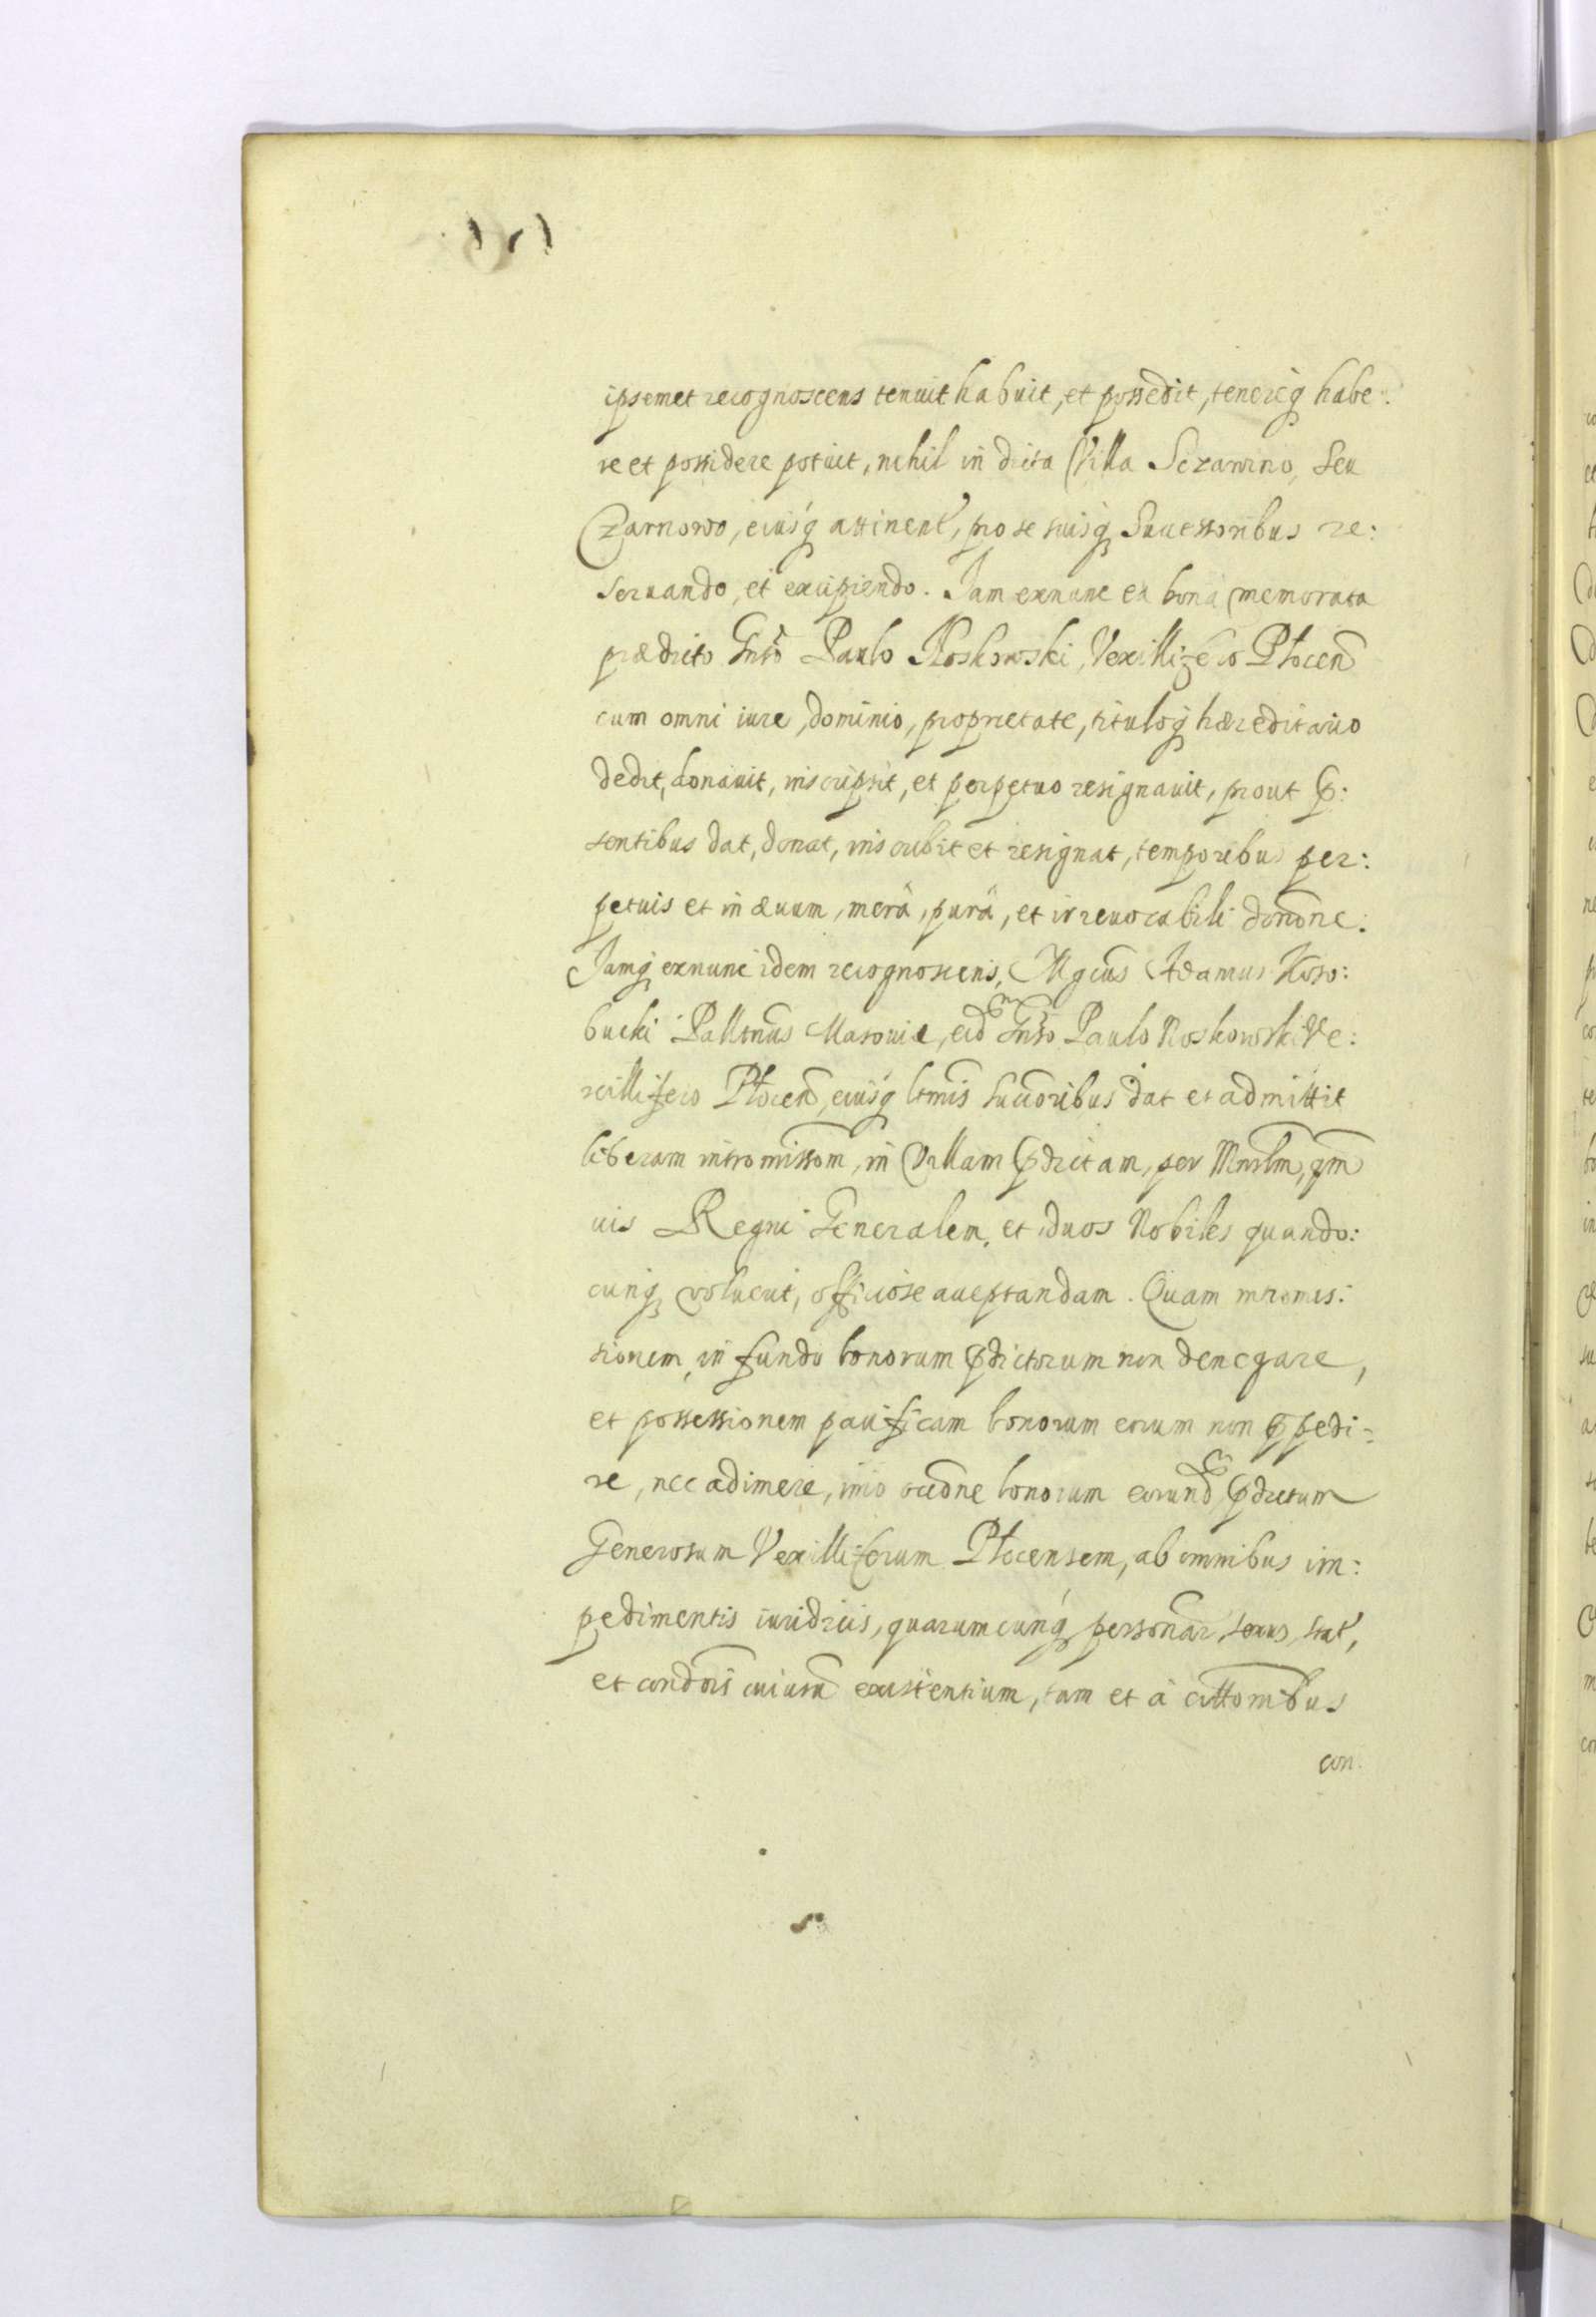 ipsemet recognoscens tenuit habuit, et possedit, tenereq habe:
re et possidere potuit, nihil in dicta Villa Sczawino, seu
Czarnowo, eiusq attinent, pro se suisq Successoribus re:
servando, et excipiendo. Jam exnunc ea bona memorata
prædicto Gnso Paulo Noskowski, Vexillifero Plocen
cum omni iure, dominio, proprietate, tituloq hæreditario
dedit, donauit, inscripsit, et perpetuo resignauit, prout p:
sentibus dat, donat, inscribit et resignat, temporibus per:
petuis et in æuum, merâ, purâ, et irreuocabili donone:
Jamq exnunc idem recognoscens, Mgcus Adamus Koso:
bucki Pallnus Masouiæ, eid Gnso Paulo Noskowski Ve:
xillifero Plocen, eiusq ltmis succoribus dat et admittit
liberam intromissom, in Villam pdictam, per Mnrlm, qm
uis Regni Generalem, et duos Nobiles quando:
cunq voluerit, officiose acceptandam. Quam intromis:
sionem, in fundo bonorum pdictorum non denegare,
et possessionem pacificam bonorum eorum non ppedi:
re, nec adimere, imo oone bonorum eorund pdictum
Generosum Vexilliferum Plocensem, ab omnibus im:
pedimentis iuridicis, quarumcunq personar, sexus, stat,
et condois cuiusu existentium, tam et à cittonibus
con: